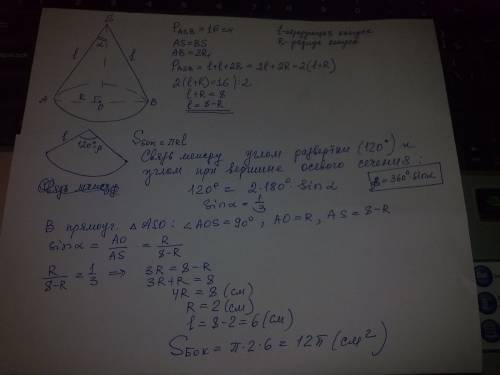 S
α
l
l
A
R
O
B
P ASB = 16 см
AS=BS
AB=2R
P ASB = l+l+2R = 2l+2R=2(l+R)
2(l+R)=16 |:2
l+R=8
l=8-R
l-образующая конуса
R-радиус конуса
l
120° β
Sбок = πRl
Связь между углом развертки (120°) и
углом при вершине осевого сечения:
120° = 2·180° · sinα
β=360° sinα
sinα=1/3
В прямоуг. △ASO: ∠AOS=90°, AO=R, AS=8-R
sinα = AO/AS = R/8-R
R/8-R = 1/3 ⟹ 3R=8-R
3R+R=8
4R=8 (см)
R=2 (см)
l=8-2=6 (см)
Sбок = π·2·6 = 12π (см²)